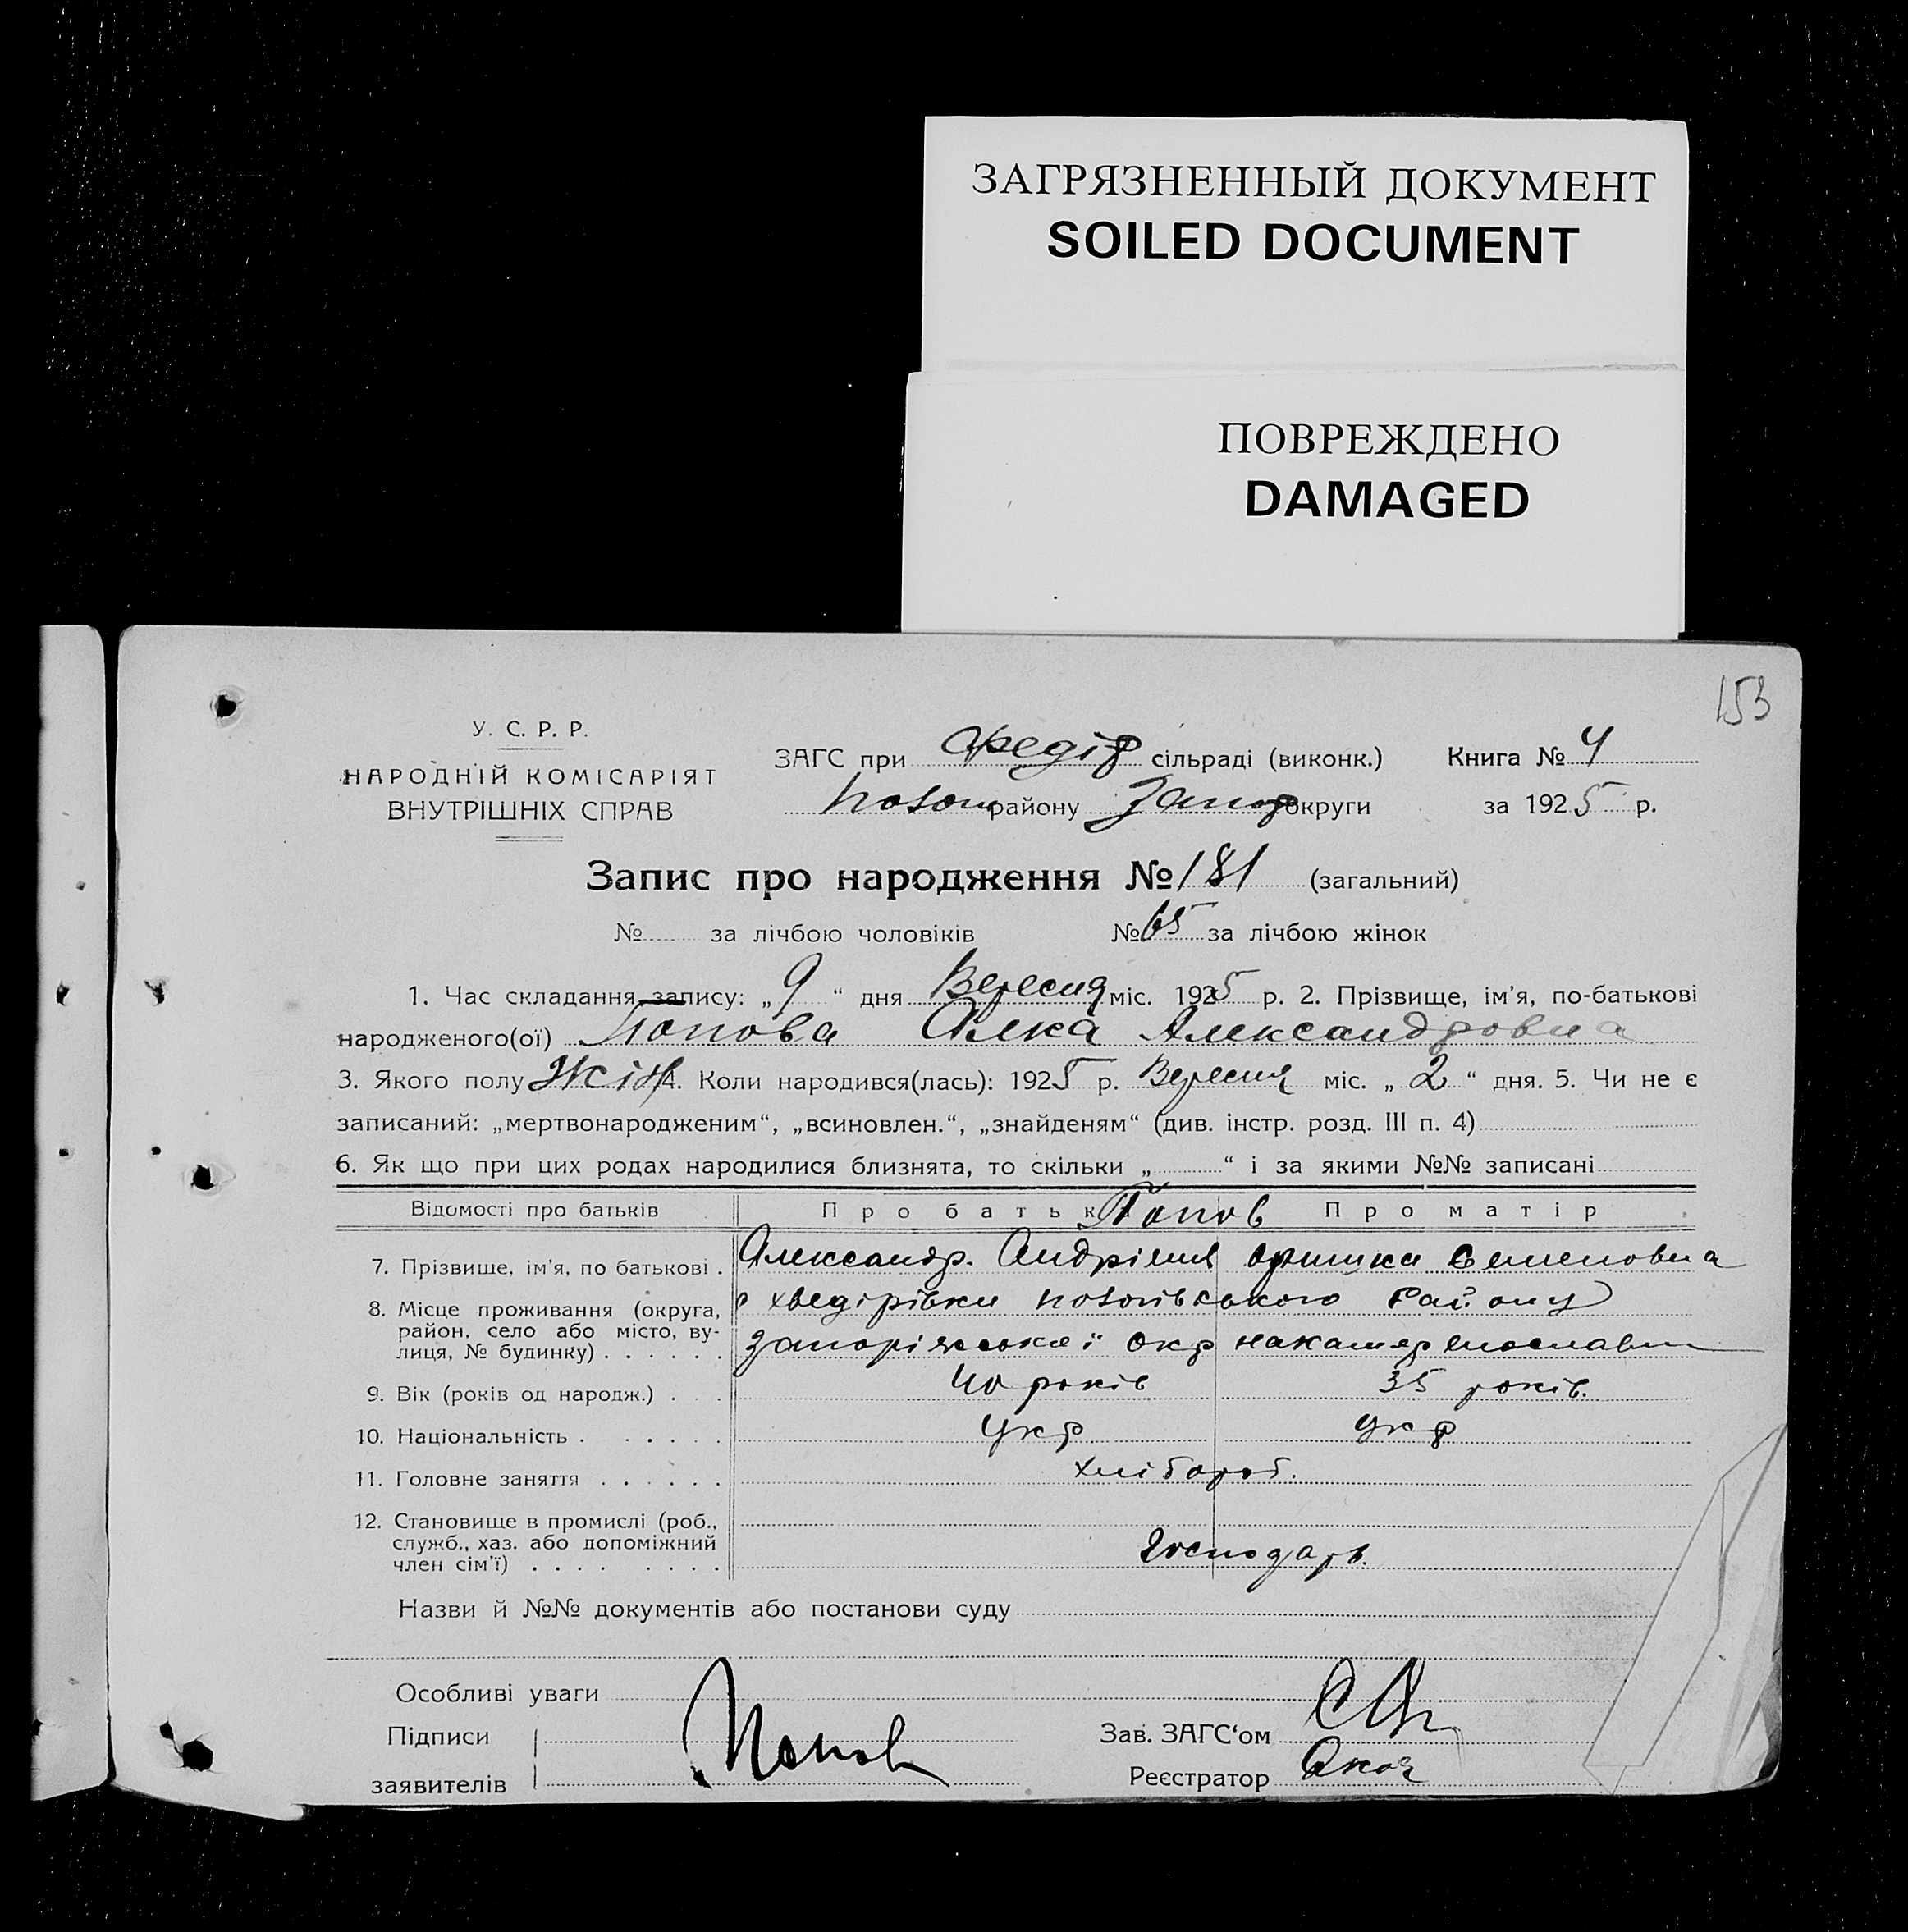 ЗАГРЯЗНЕННЫЙ ДОКУМЕНТ
SOILED DOCUMENT
ПОВРЕЖДЕНО
DAMAGED
153
У. С. Р. Р.
НАРОДНІЙ КОМІСАРІЯТ
ВНУТРІШНІХ СПРАВ
ЗАГС при Федір сільраді (виконк.) Книга № 4
району Запор округи за 1925 р.
Запис про народження № 181 (загальний)
№ за лічбою чоловіків № 65 за лічбою жінок
1. Час складання запису: „9“ дня Вересня міс. 1925 р. 2. Прізвище, ім’я, по-батькові
народженого(ої) Попова Александровна
3. Якого полу Жін 4. Коли народився(лась): 1925 р. Вересня міс. „2“ дня. 5. Чи не є
записаний: „мертвонародженим“, „всиновлен.“, „знайденям“ (див. інстр. розд. III п. 4)
6. Як що при цих родах народилися близнята, то скільки „ “ і за якими №№ записані
Відомості про батьків Про батьк Попов Про матір
7. Прізвише, ім’я, по батькові . Александр. Андріяив Оришка Семеновна
8. Місце проживання (округа, хведірівки району
район, село або місто, ву-
лиця, № будинку) . . . . . . запоріжської окр
9. Вік (років од народж.) . . . 40 років 35 років.
10. Національність . . . . . . Укр укр
11. Головне заняття . . . . . . хлібороб.
12. Становище в промислі (роб.,
служб., хаз. або допоміжний
член сім’ї) . . . . . . . . господарь.
Назви й №№ документів або постанови суду
Особливі уваги
Підписи
заявителів Попов
Зав. ЗАГС‘ом
Реєстратор